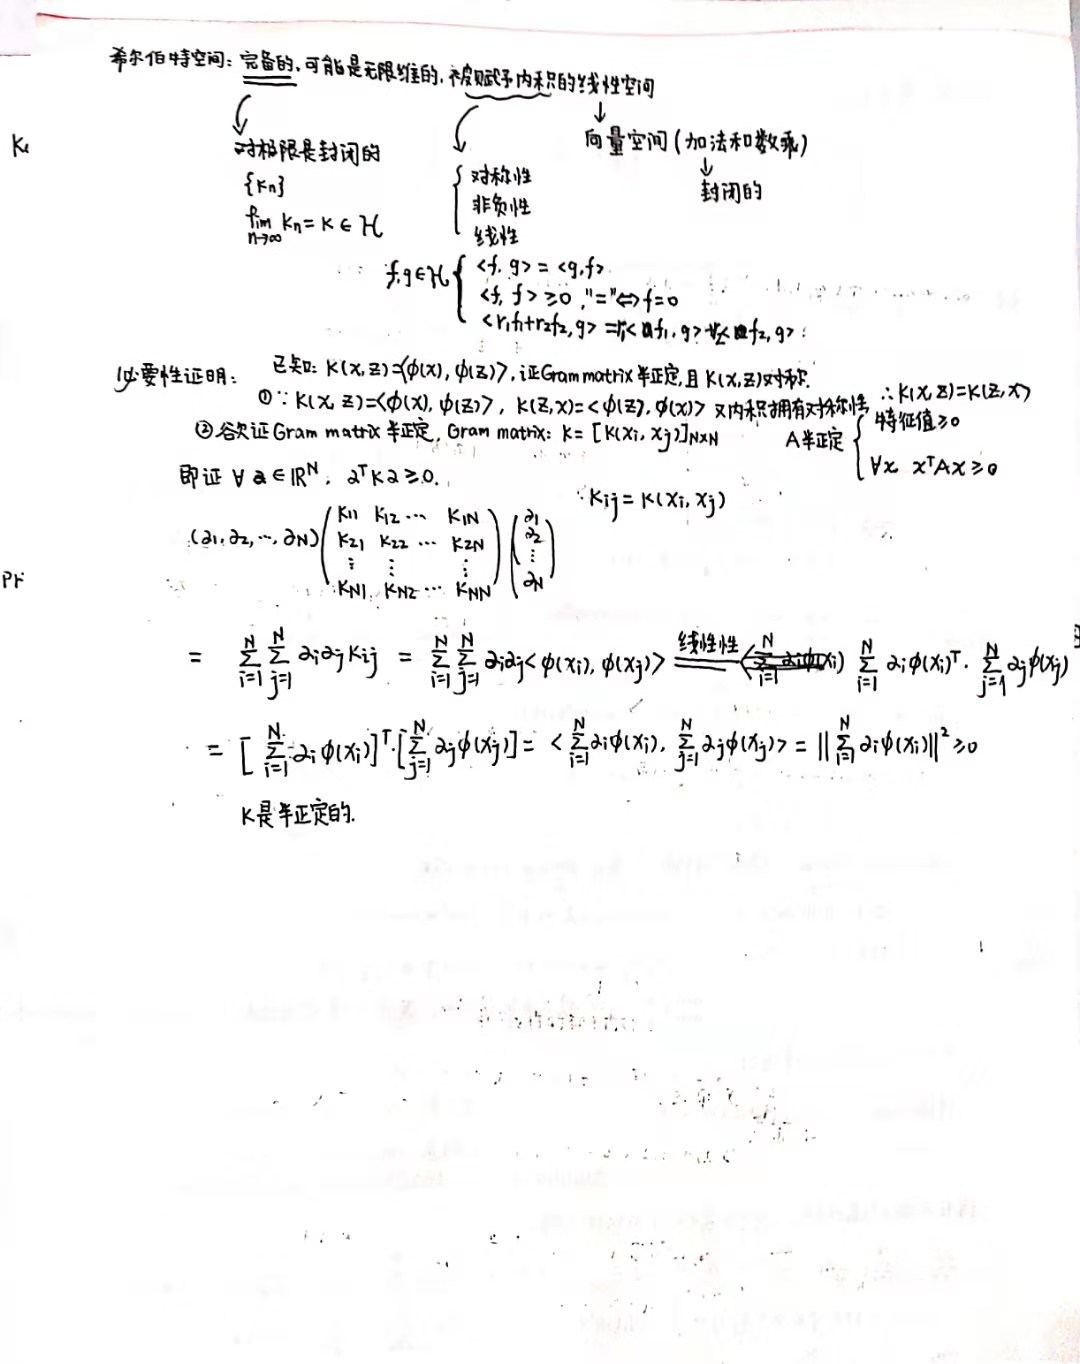 希尔伯特空间：完备的，可能是无限维的，被赋予内积的线性空间
对极限是封闭的
{Kn}
lim n→∞ Kn = K ∈ H
对称性
非负性
线性
向量空间（加法和数乘）
封闭的
f,g∈H { <f, g> = <g,f>
<f, f> ≥0, "=" ⇔ f=0
<r₁f₁+r₂f₂, g> = r₁<f₁, g> + r₂<f₂, g>
必要性证明：
已知：K(x,z)=<ϕ(x), ϕ(z)>，证Gram matrix半正定，且K(x,z)对称.
①∵ K(x,z)=<ϕ(x), ϕ(z)>， K(z,x)=<ϕ(z), ϕ(x)> 又内积拥有对称性 ∴K(x,z)=K(z,x)
②欲证Gram matrix半正定， Gram matrix: K = [K(xi, xj)]N×N
A半正定 { 特征值≥0
∀x xᵀAx≥0
即证 ∀ a ∈ ℝᴺ， aᵀKa≥0.
∵Kij = K(xi, xj)
(a1, a2, ⋯, aN) ( K11 K12 ⋯ K1N ) ( a1 )
K21 K22 ⋯ K2N a2
⋮ ⋮ ⋮ ⋮
KN1 KN2 ⋯ KNN aN
= ∑_{i=1}^{N} ∑_{j=1}^{N} aiajKij = ∑_{i=1}^{N} ∑_{j=1}^{N} aiaj<ϕ(xi), ϕ(xj)> 线性性 ∑_{i=1}^{N} aiϕ(xi)ᵀ · ∑_{j=1}^{N} ajϕ(xj)
= [∑_{i=1}^{N} aiϕ(xi)]ᵀ·[∑_{j=1}^{N} ajϕ(xj)] = <∑_{i=1}^{N} aiϕ(xi), ∑_{j=1}^{N} ajϕ(xj)> = ‖∑_{i=1}^{N} aiϕ(xi)‖² ≥0
K是半正定的.